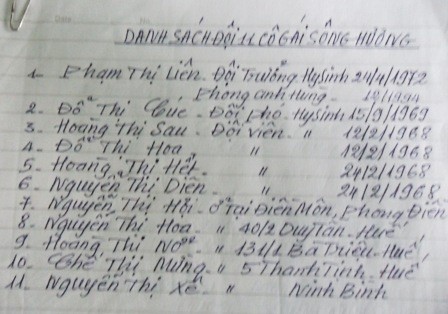 DANH SÁCH ĐỘI 11 CÔ GÁI SÔNG HƯƠNG
1- Phạm Thị Liên - Đội Trưởng Hy Sinh 24/4/1972
Phong anh Hùng - 12/1994
2. Đỗ Thị Cúc - Đội phó - Hy Sinh 15/9/1969
3- Hoàng Thị Sáu - Đội viên - " 12/2/1968
4- Đỗ Thị Hoa " 12/2/1968
5- Hoàng Thị Hết - " 24/2/1968
6- Nguyễn Thị Diên - " 24/2/1968
7- Nguyễn Thị Hợi - ở Tại Điền Môn, Phong Điền
8- Nguyễn Thị Hoa - " 40/2 Duy Tân - Huế
9- Hoàng Thị Nở - " 131/1 Bà Triệu - Huế,
10- Chế Thị Mừng - " 5 Thanh Tịnh - Huế
11- Nguyễn Thị Xê - " Ninh Bình